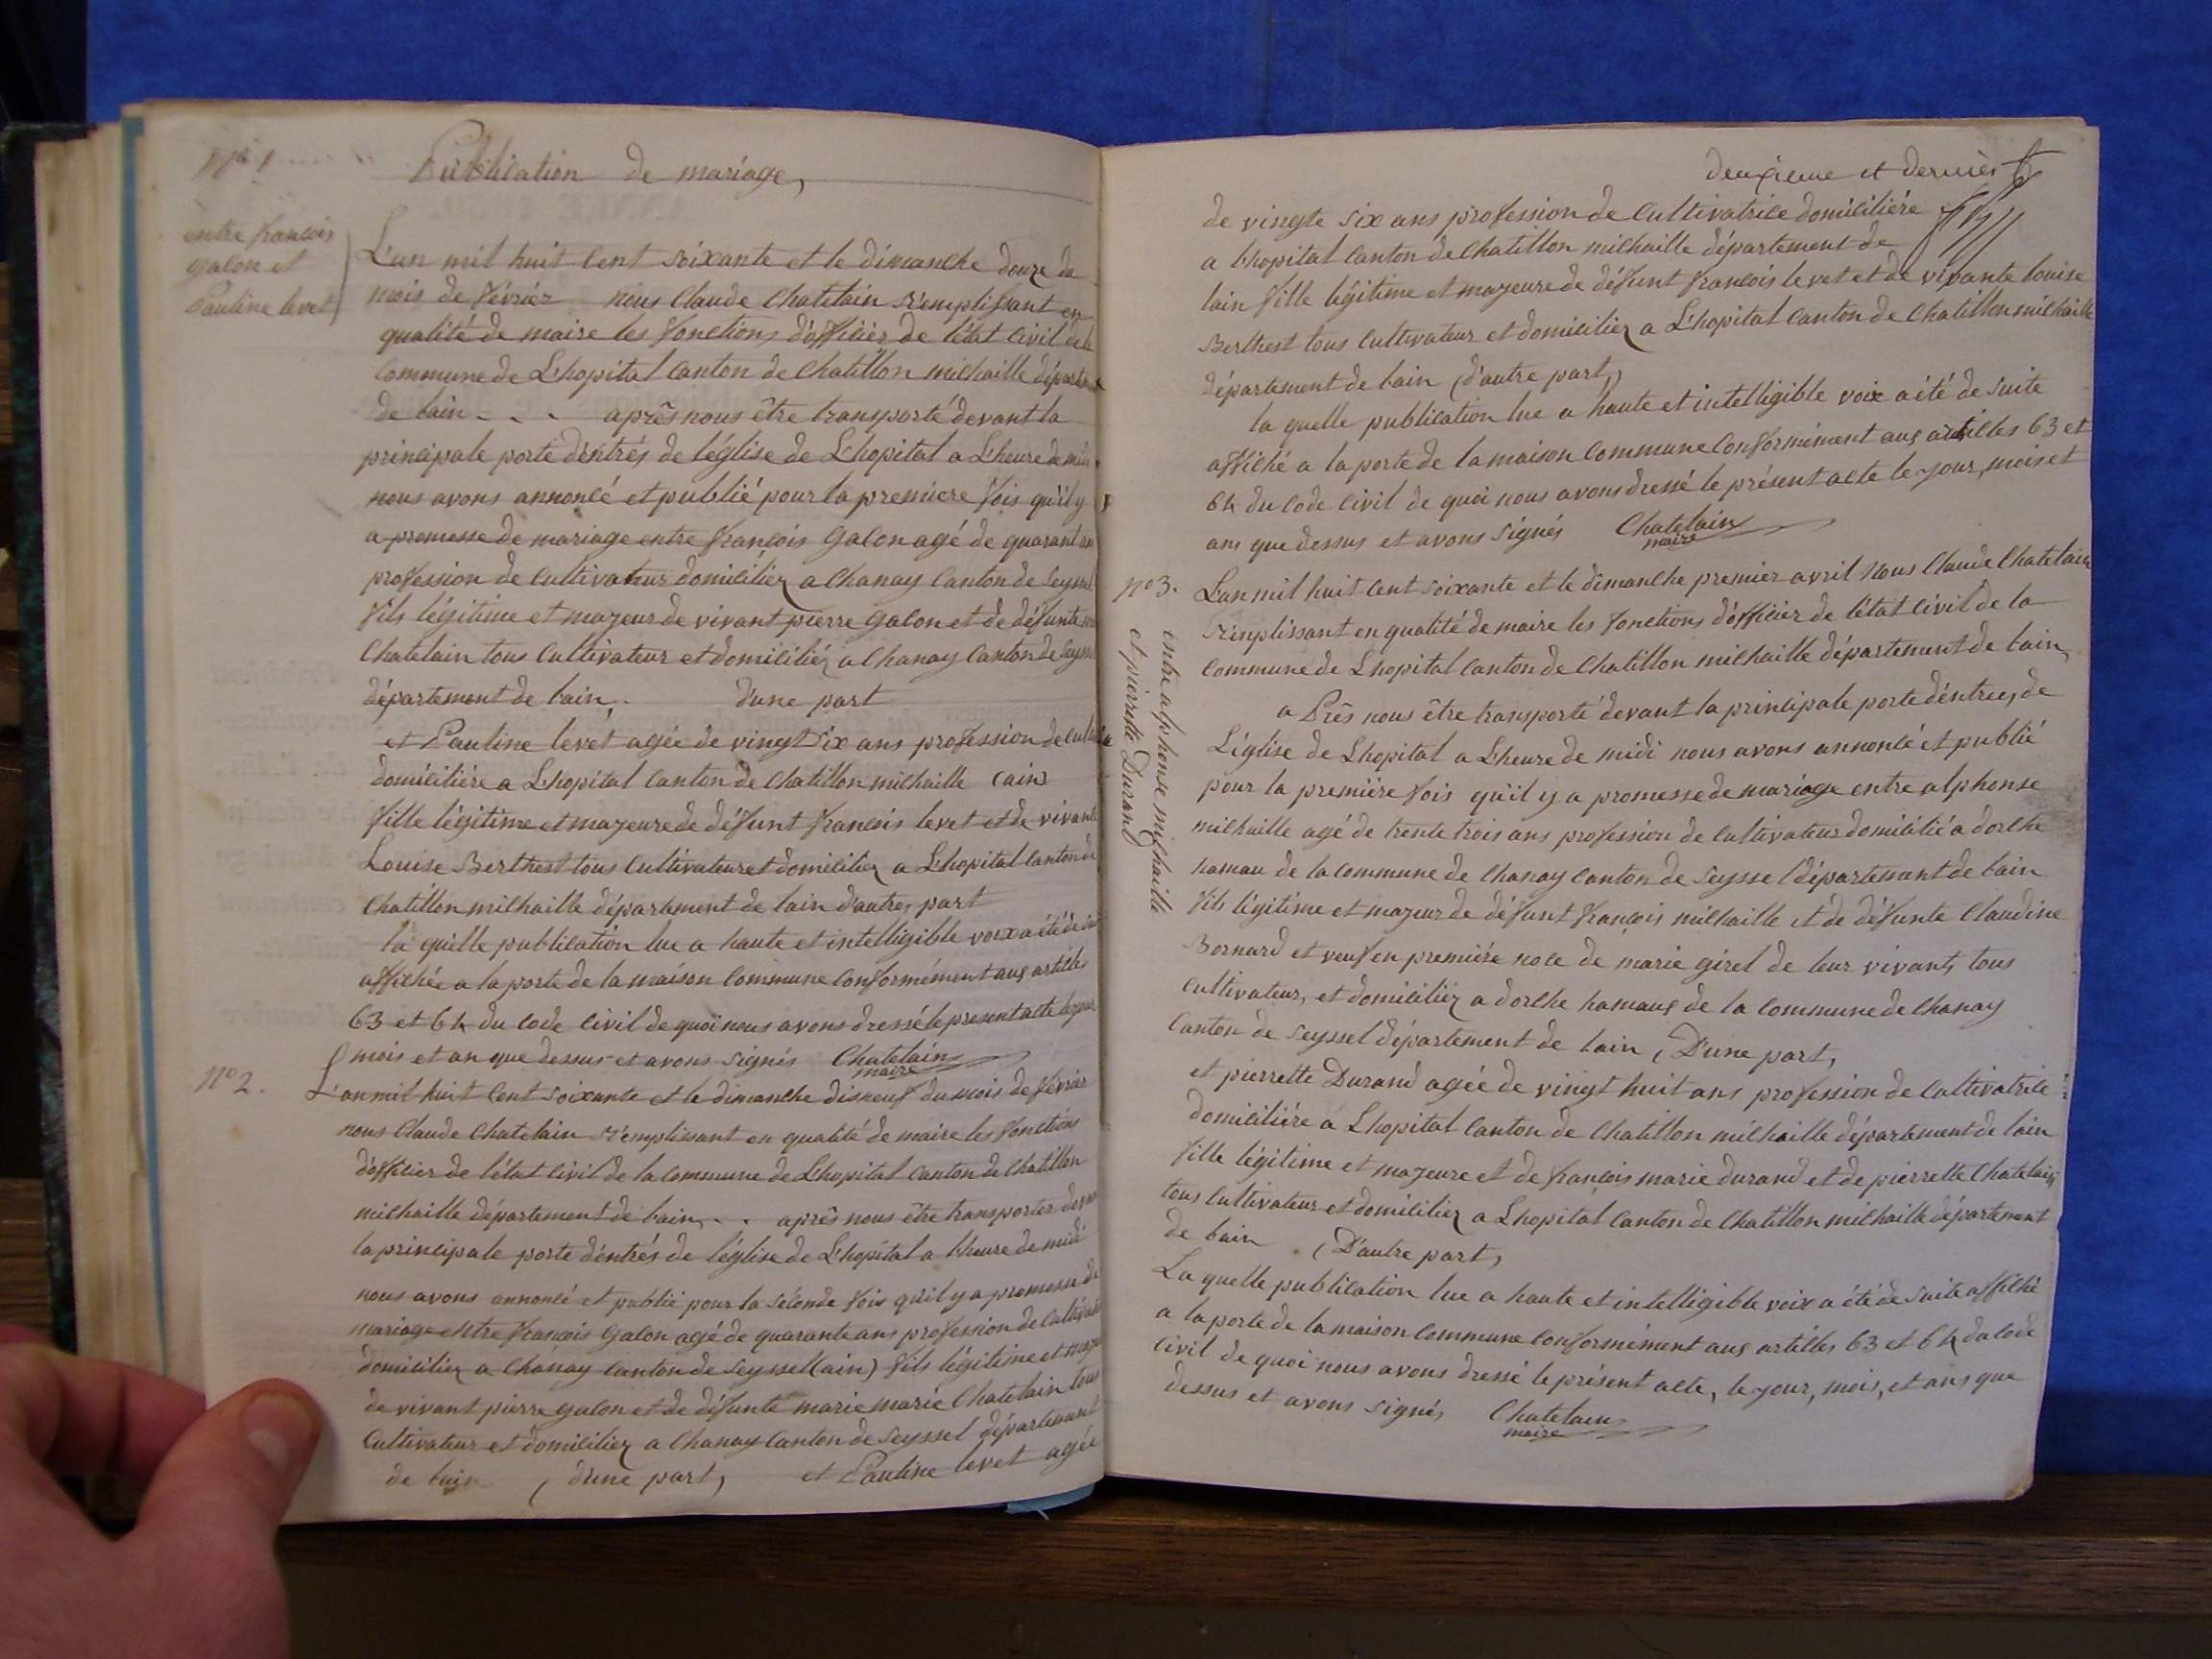 nº 1
Publication de mariage,
entre francois
galon et
Pauline levet
L'an mil huit cent soixante et le dimanche douze du
mois de février nous Claude Chatelain remplissant en
qualité de maire les fonctions d'officier de l'état civil de la
Commune de L'hopital canton de Chatillon michaille départ
de lain - - - après nous être transporté devant la
principale porte d'éntrés de léglise de L'hopital a L'heure de midi
nous avons annoncé et publié pour la premiere fois qu'il y
a promesse de mariage entre francois galon agé de quarant ans
profession de cultivateur domicilier a Chanay Canton de Seyssel
fils légitime et majeur de vivant pierre galon et de défunte
Chatelain tous cultivateur et domicilier a Chanay Canton de Seyssel
département de lain, d'une part
et Pauline levet agée de vingt six ans profession de
domicilière a L'hopital canton de Chatillon michaille (ain)
fille légitime et majeure de défunt francois levet et de vivante
Louise Berthest tous Cultivateur et domicilier a L'hopital canton de
Chatillon michaille département de lain d'autres part
la quelle publication lue a haute et intelligible voix a été de
affichée a la porte de la maison commune conformément aux articles
63 et 64 du code civil de quoi nous avons dressé le present acte le jour
mois et an que dessus et avons signés Chatelain
maire
nº 2.
L'an mil huit cent soixante et le dimanche disneuf du mois de février
nous Claude Chatelain remplissant en qualité de maire les fonctions
d'officier de l'état civil de la commune de L'hopital canton de Chatillon
michaille département de lain - - . après nous être transporter devant
la principale porte d'éntrés de léglise de L'hopital a l'heure de midi
nous avons annoncé et publié pour la séconde fois qu'il y a promesse de
mariage entre francois galon agé de quarante ans profession de cultivateur
domicilier a Chanay canton de Seyssel (ain) fils légitime et
de vivant pierre galon et de défunte marie marie Chatelain tous
Cultivateur et domicilier a Chanay canton de Seyssel département
de lain (d'une part, et Pauline levet agée
deuxieme et dernier
de vingte six ans profession de cultivatrice domicilière
a Lhopital canton de Chatillon michaille département de
lain fille légitime et majeure de défunt francois levet et de vivante louise
Berthest tous cultivateur et domicilier a L'hopital canton de Chatillon michaille
département de lain (d'autre part,
la quelle publication lue a haute et intelligible voix a été de suite
affiché a la porte de la maison commune conformément aux articles 63 et
64 du code civil de quoi nous avons dressé le présent acte le jour, mois et
ans que dessus et avons signés Chatelain
maire
nº 3.
entre alphonse michaille
et pierrette Durand
L'an mil huit cent soixante et le dimanche premier avril nous Claude Chatelain
remplissant en qualité de maire les fonctions d'officier de l'état civil de la
commune de L'hopital canton de Chatillon michaille département de lain,
a Près nous être transporté devant la principale porte d'éntrees, de
L'église de L'hopital a L'heure de midi nous avons annoncé et publié
pour la première fois qu'il y a promesse de mariage entre alphonse
michaille agé de trente trois ans profession de cultivateur domicilié a dorche
hamau de la commune de Chanay canton de Seyssel département de lain
fils légitime et majeur de défunt françois michaille et de défunte Claudine
Bornard et veuf en première noce de marie girel de leur vivant, tous
cultivateur, et domicilier a dorche hamaux de la commune de Chanay
Canton de Seyssel département de lain, D'une part,
et pierrette Durand agée de vingt huit ans profession de cultivatrice
domicilière a L'hopital canton de Chatillon michaille département de lain
fille légitime et majeure et de francois marie durand et de pierrette Chatelain
tous cultivateur et domicilier a Lhopital canton de Chatillon michaille département
de lain (D'autre part,
La quelle publication lue a haute et intelligible voix a été de suite affiché
a la porte de la maison commune conformément aux articles 63 et 64 du code
civil de quoi nous avons dressé le présent acte, le jour, mois, et ans que
dessus et avons signés Chatelain
maire